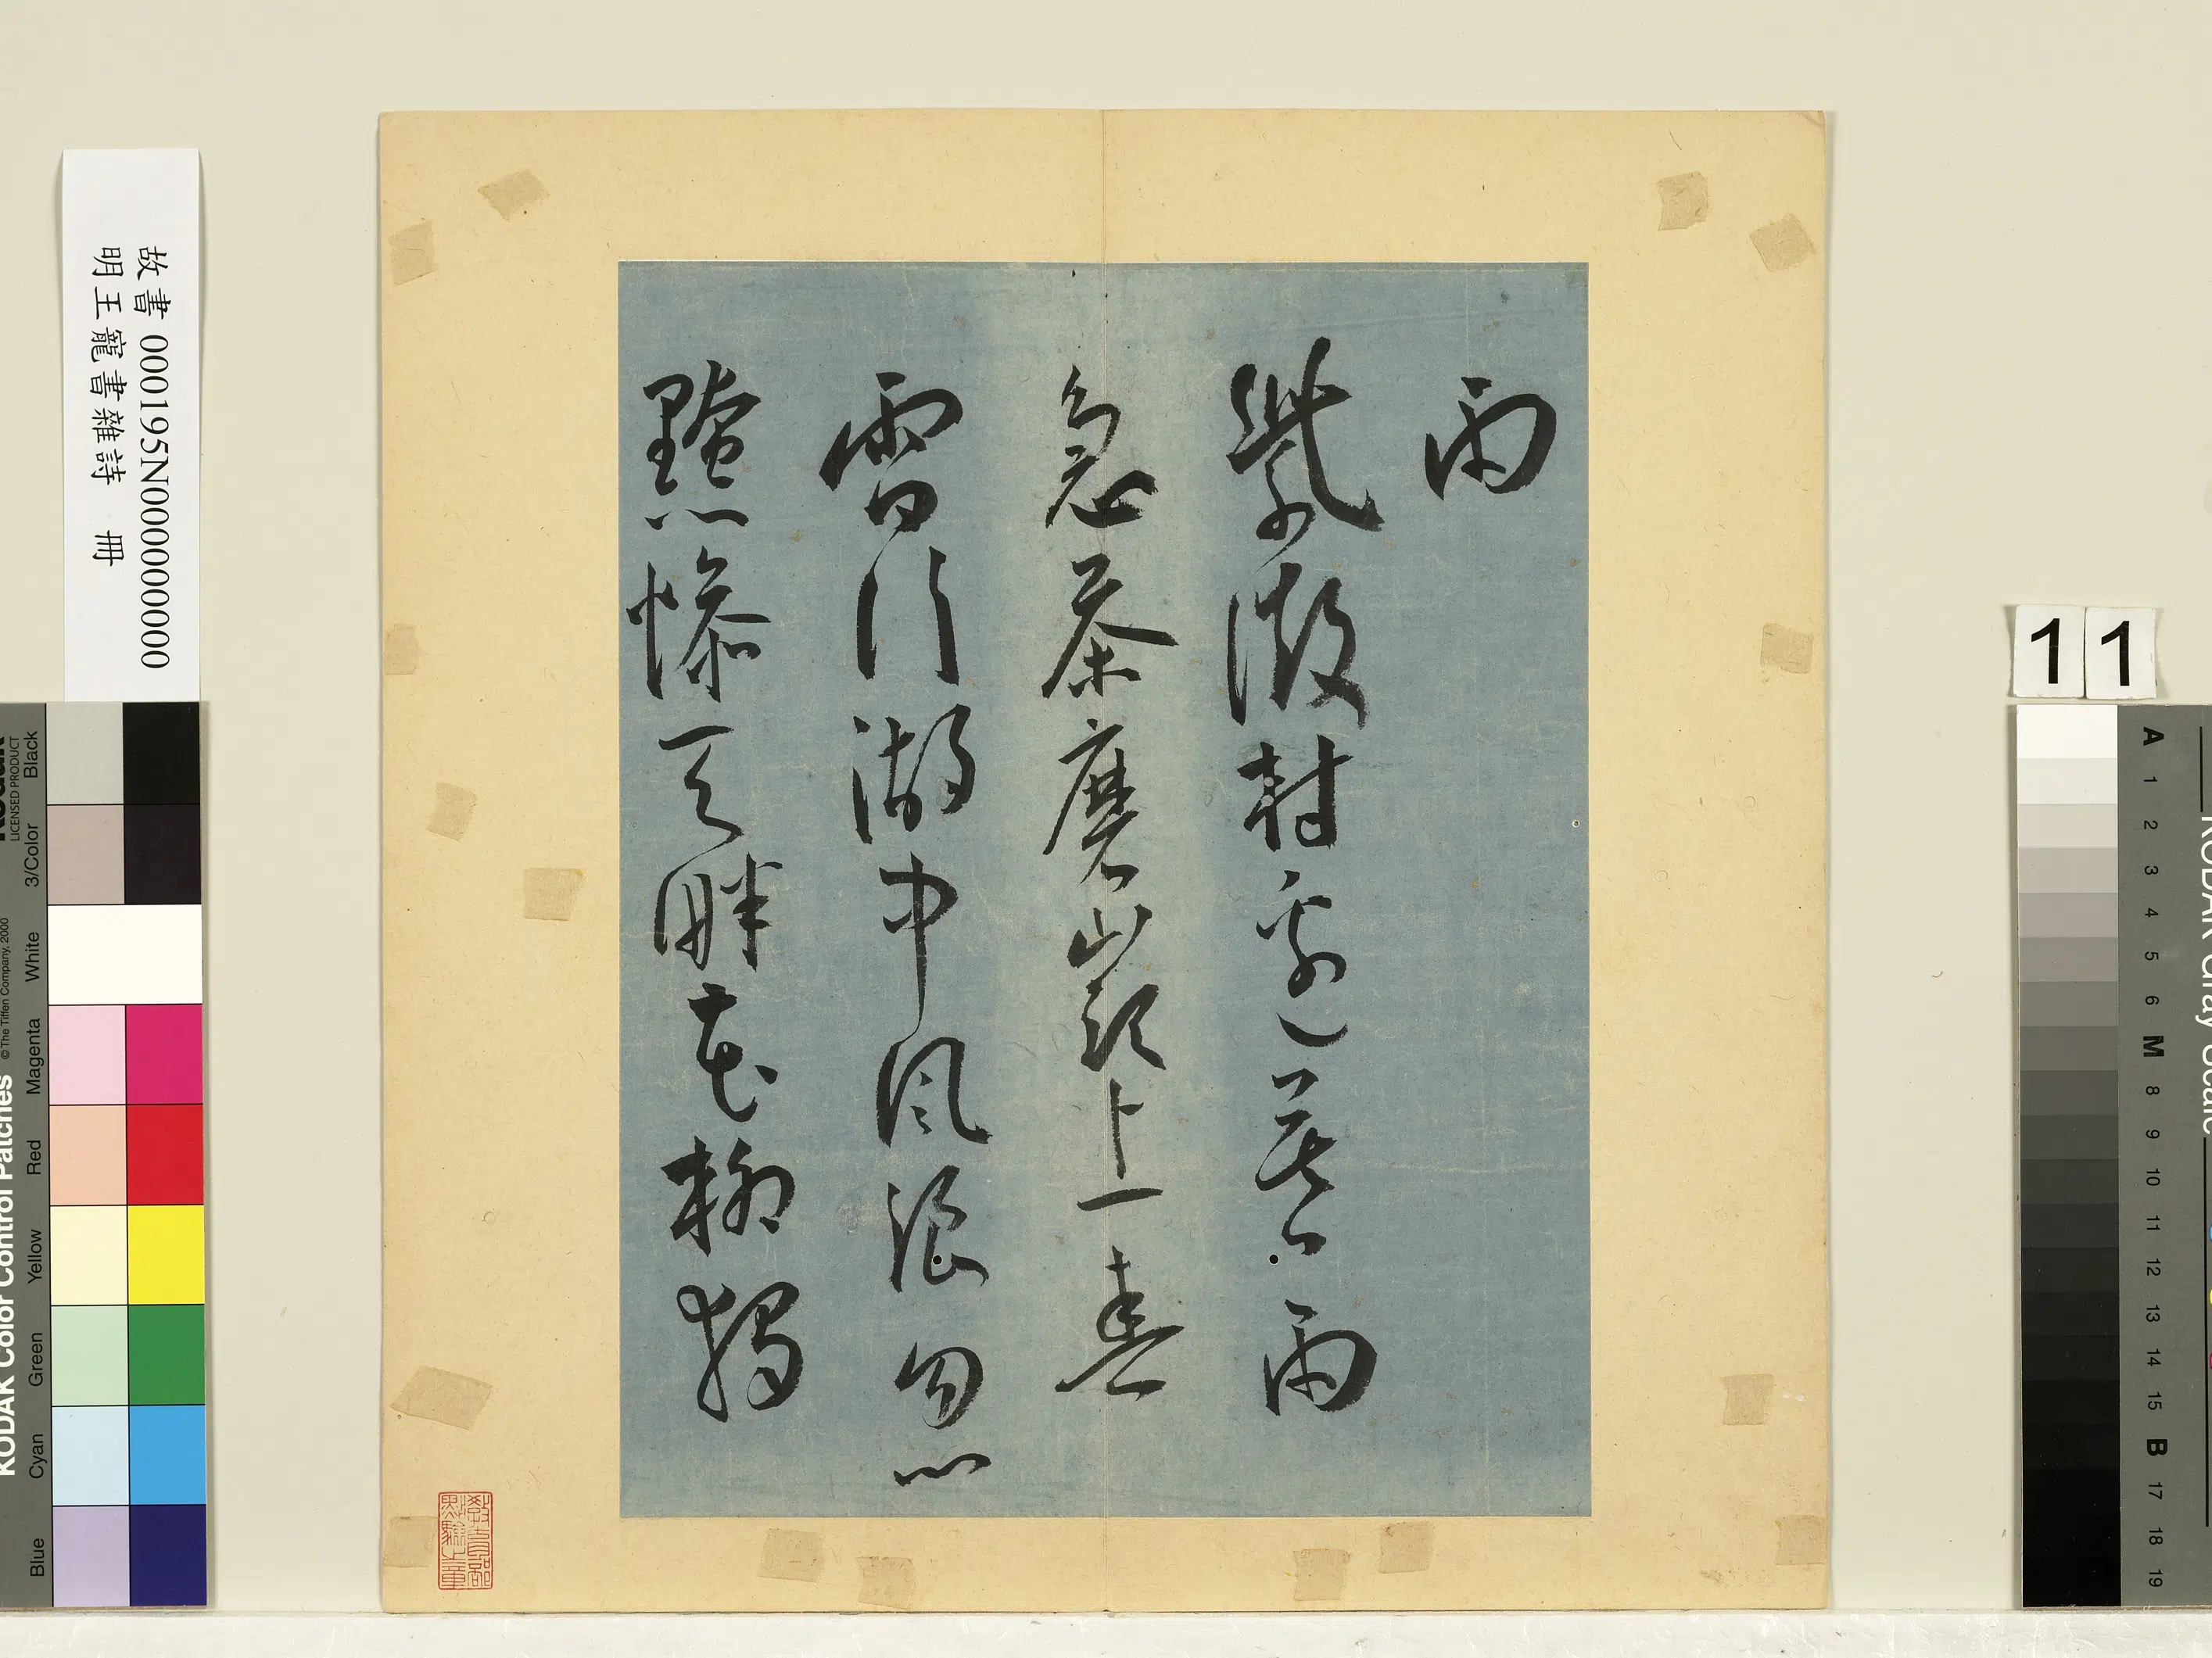 雨
紫微村邊暮雨
急茶磨嶺上春
雷行湖中風浪忽
黯慘天畔花柳獨
教育部
點驗之章
故書 000195N000000000
明王寵書雜詩 冊
11
KODAK Color Control Patches
© The Tiffen Company, 2000
LICENSED PRODUCT
Blue Cyan Green Yellow Red Magenta White 3/Color Black
KODAK Gray Scale
A 1 2 3 4 5 6 M 8 9 10 11 12 13 14 15 B 17 18 19